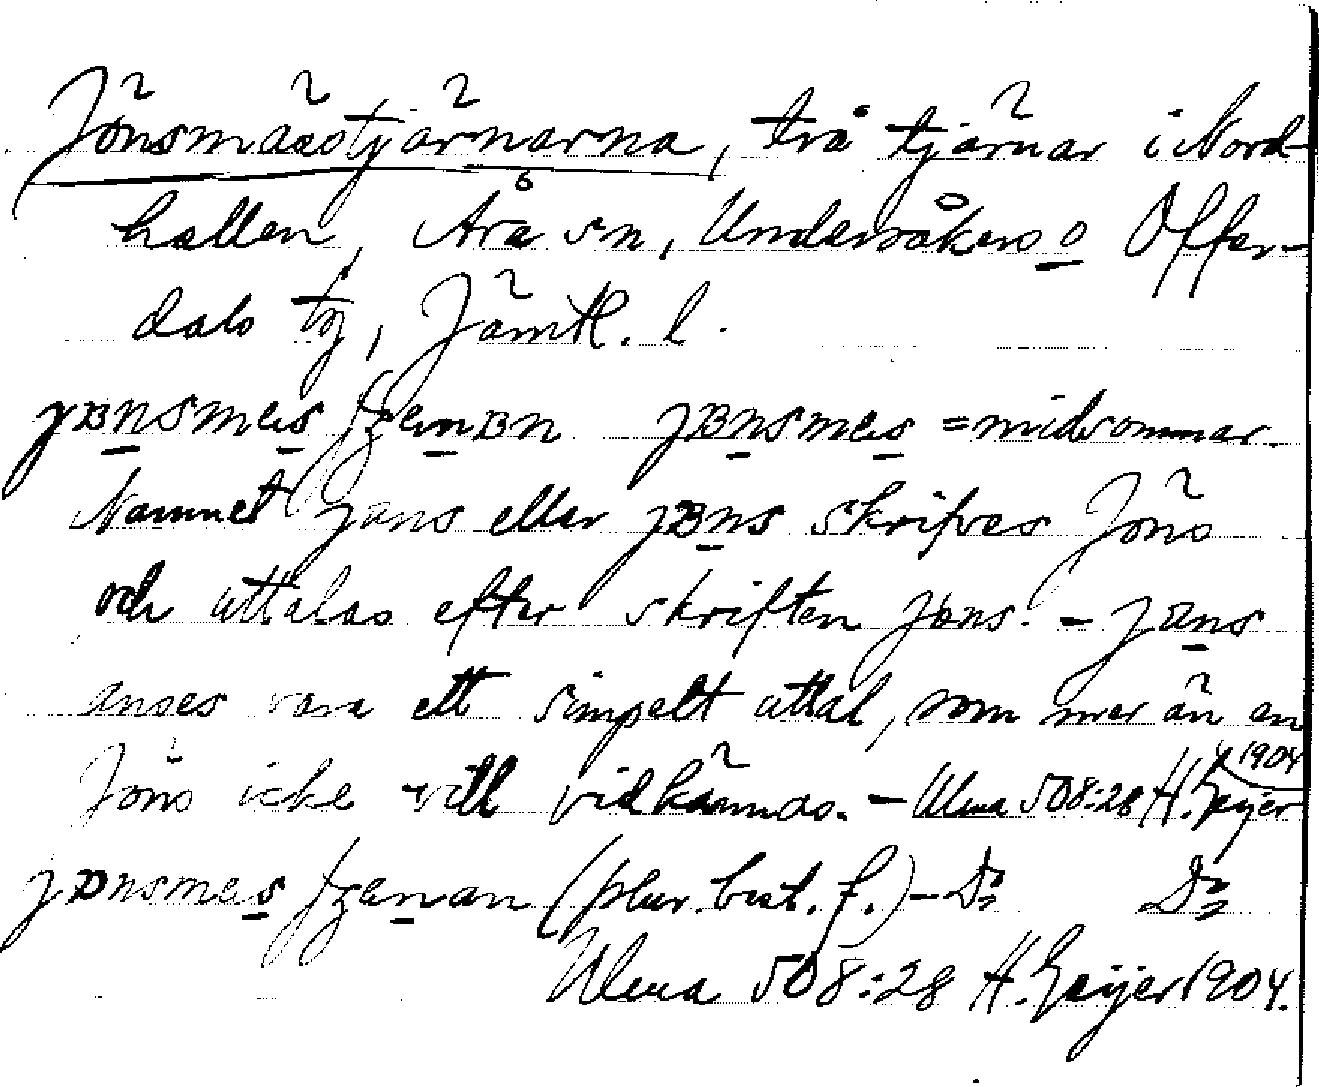 Jönsmässtjärnarna, två tjärnar i Nord-
hallen, Åre sn, Undersåkers o Offer-
dals tg, Jämtl. l.
jʙnsmes = midsommar.
Namnet jans eller jʙns skrifves Jöns
och uttalas efter skriften jöns. – jans
anses vara ett simpelt uttal, som mer än en
Jöns icke vill vidkännas. – Ulma 508:28 H. Geijer 1904
(plur. best. f.) – D:o D:o
Ulma 508:28 H. Geijer 1904.